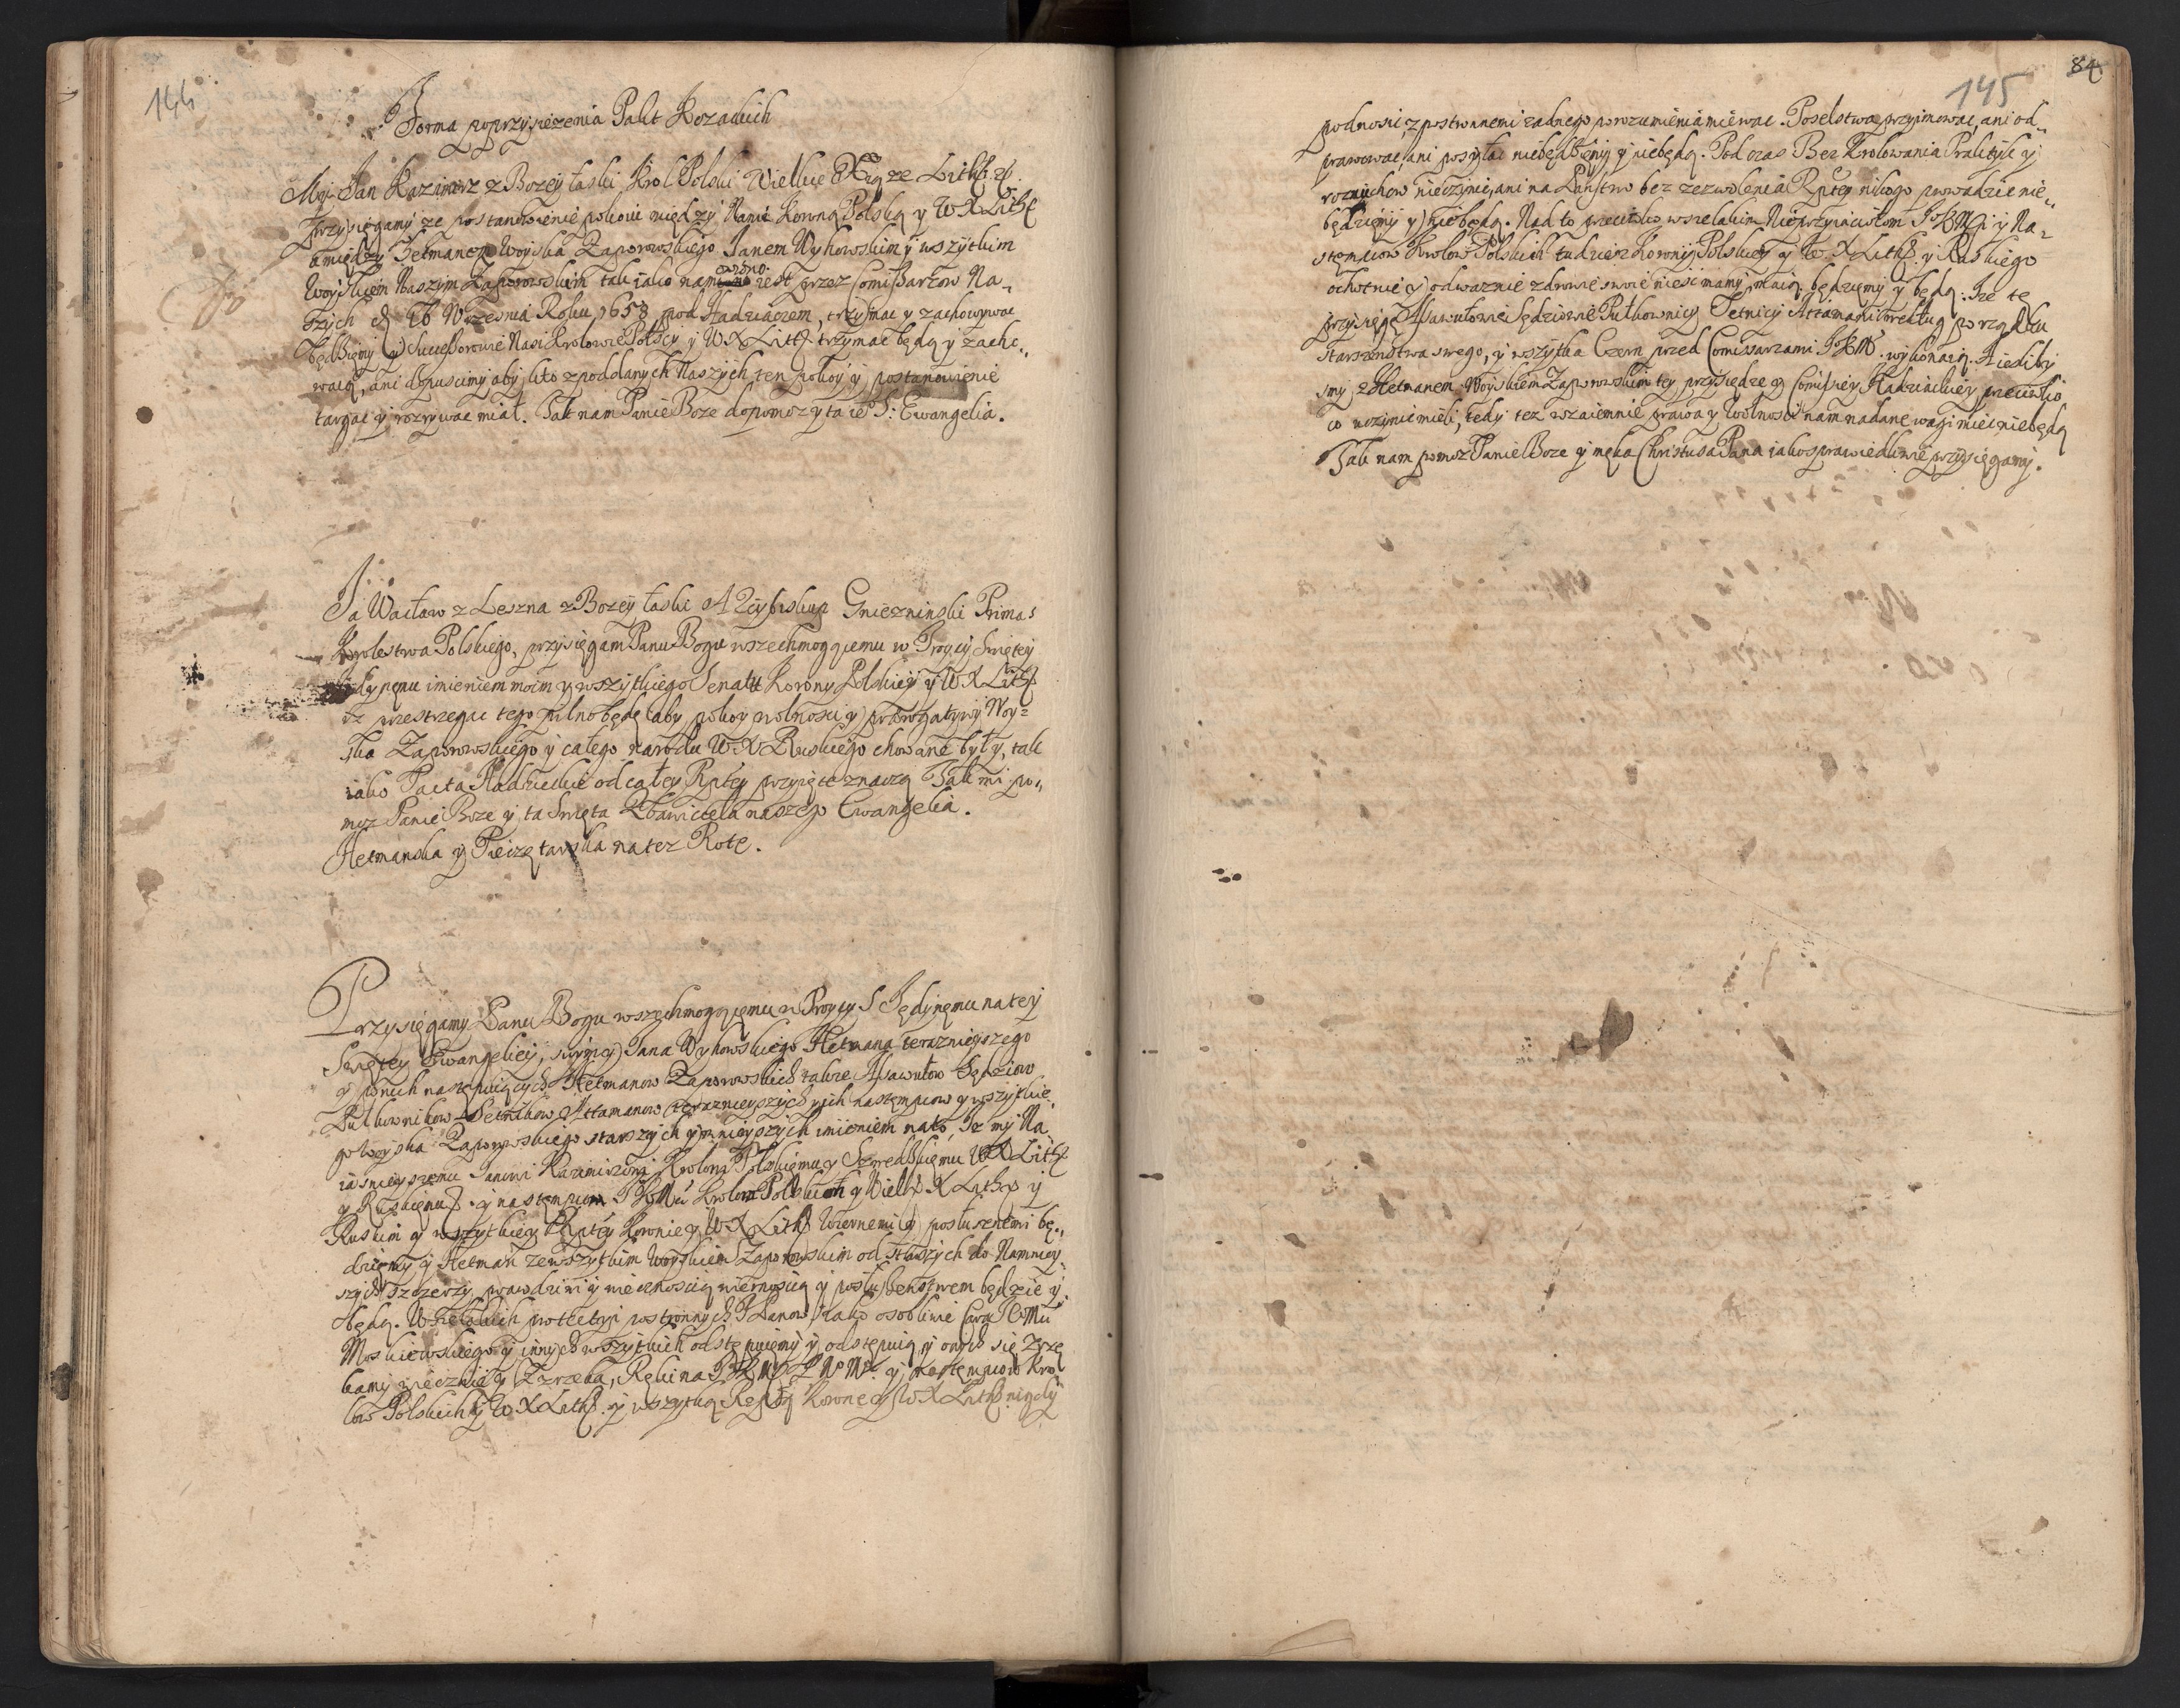 144
Forma poprzysiezenia Pakt Kozackich
My Jan Kazimierz z Bozey łaski Krol Polski Wielkie Xiąze Lith.
przysięgamy ze postanowienie pokoiu między Nami Koroną Polską y WXLith
a między Hetmanem Woyska Zaporowskiego Janem Wyhowskim y wszytkim
Woyskiem Naszym Zaporowskim tak iako namowiono iest przez Comissarzow Na-
szych d. 16 Wrzesnia Roku 1658 pod Hadziaczem, trzymac y zachowywac
będziemy y Successorowie Nasi Krolowie Polscy y WXLith trzymac będą y zacho-
waią, ani dopuscimy aby kto z poddanych Naszych ten pokoy y postanowienie
targac y rozrywac miał. Tak nam Panie Boze dopomoz y ta ie S: Ewangelia.
Ja Wacław z Leszna z Bozey łaski Arcybiskup Gniezninski Primas
Krolestwa Polskiego, przysięgam Panu Bogu wszechmogącemu w Troycy Swiętey
Jedynęmu imieniem moim y wszytkiego Senatu Korony Polskiey y WXLith
iz przestrzegac tego pilno będę aby pokoy wolnosci y prærogatywy Woy-
ska Zaporowskiego y całego narodu WX Ruskiego chowane były, tak
iako Pacta Hadziackie od całey Rptey przyięte znaczą Tak mi po-
moz Panie Boze y ta Swięta Zbawiciela naszego Ewangelia.
Hetmanska y Pieczętarska na tez Rotę.
Przysięgamy Panu Bogu wszechmogącemu w Troycy S Jędynęmu na tey
Swiętey Ewangeliey, swym y Jana Wyhowskiego Hetmana teraznieyszego
y po nich następuiących Hetmanow Zaporowskich takze Assawułow Sędziow
Pułkownikow Setnikow Attamanow teraznieyszych y ich następcow y wszytkie-
go woyska Zaporowskiego starszych y mnieyszych imieniem na to, Iz my Na
iasnieyszemu Janowi Kazimirzowi Krolowi Polskiemu y Szwedzkiemu WX Lith
y Ruskiemu y następcom JKMci Krolom Polskich y Wielk X Lith y
Ruskim y wszytkiey Rptey Koronie y WX Lith Wiernemi y posłusznemi bę-
dziemy y Hetman ze wszytkim Woyskiem Zaporowskim od starszych do Namniey
szych szczerzy prawdziwi y wiecznoscią wiernoscią y posłuszenstwem będzie y
będą. Wszelakich protectyi postronnych Panow iako osobliwie Cara JeMci
Moskiewskiego y innych wszytkich odstępuiemy y odstępuią y onych się zrze
kamy wiecznie y Zrzeka, Ręki na JKMć y następcow Kro
low Polskich y WXLith. y wszytkę Rptą Koronę y WX Lith nigdy
84
145
podnosic, z postronnemi zadnego porozumienia miewac. Poselstwa przyimowac, ani od-
prawowac, ani posyłac niebędziemy y niebędą. Pod czas Bez Krolowania Praktyk y
rozruchow nieczynic, ani na Panstwo bez zezwolenia Rptey nikogo prowadzic nie-
będziemy y niebędą. Nad to przeciwko wszelakim Nieprzyiaciołom JKMci y Na-
stępcow Krolow Polskich tudziez Korony Polskiey y W. X Lith. y Ruskiego
ochotnie y odwaznie zdrowie swoie niesc mamy, maią, będziemy y będą. Ize tę
przysięgę Assawułowie Sędziowie Pułkownicy Setnicy Attamani według porządku
starszenstwa swego, y wszytka Czern przed Comissarzami JKM. wykonaią. A iesliby
smy z Hetmanem Woyskiem Zaporowskim tey przysiędze y Comissiey Hadziackiey przeciwko
co uczynic mieli, tedy tez wzaiemnie prawa y Wolnosci nam nadane wagi miec niebędą
Tak nam pomoz Panie Boze y męka Christusa Pana iako sprawiedliwie przysięgamy.